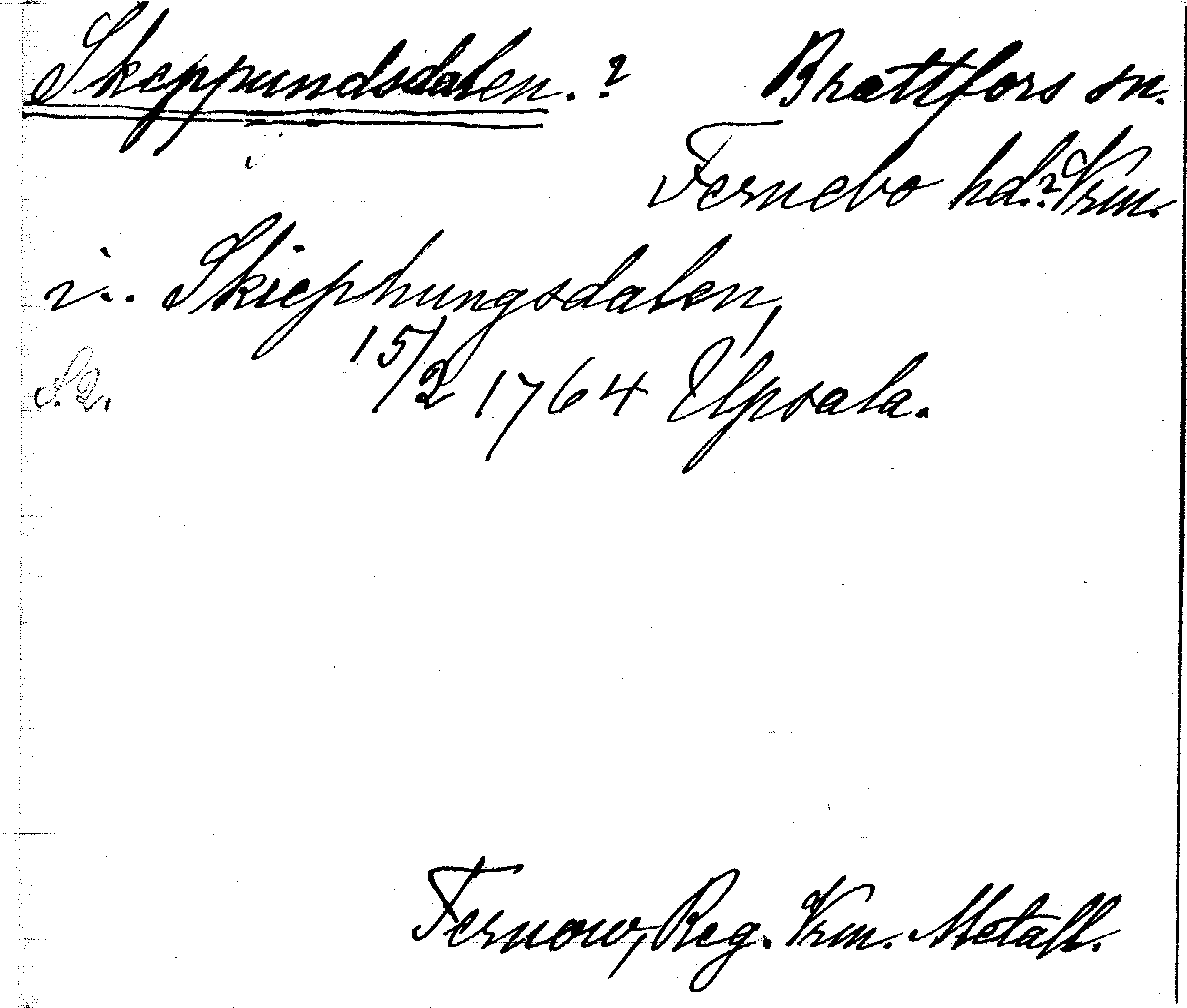 Skeppundsdalen. ? Brattfors sn.
Fernebo hd.? Vrm.
i.. Skiephungsdalen,
15/2 1764 Upsala.
S. 2.
Fernow, Reg. Vrm. Metall.